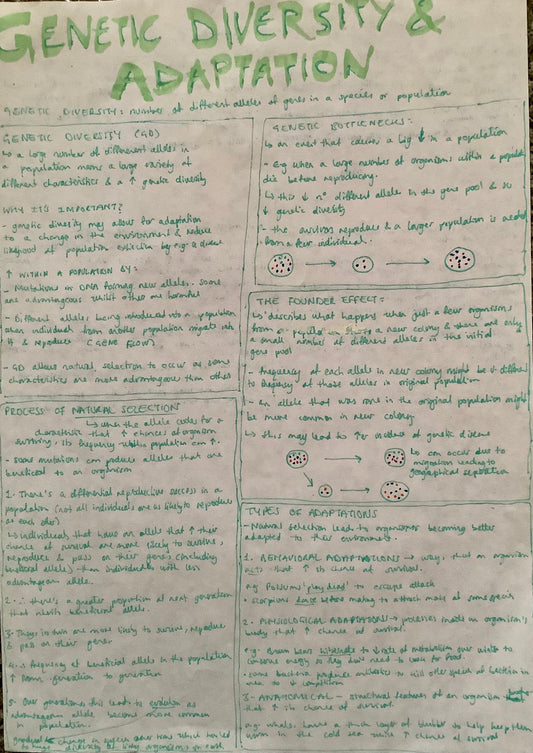 GENETIC DIVERSITY &
ADAPTATION
GENETIC DIVERSITY: number of different alleles of genes in a species or population
GENETIC DIVERSITY (GD)
↳ a large number of different alleles in
a population means a large variety of
different characteristics & a ↑ genetic diversity
WHY IT'S IMPORTANT?
- genetic diversity may allow for adaptation
to a change in the environment & reduce
likelihood of population extinction by e.g. a disease
↑ WITHIN A POPULATION BY:
- Mutations in DNA forming new alleles. Some
are advantageous whilst other are harmful
- Different alleles being introduced into a population
when individuals from another population migrate into
it & reproduce (GENE FLOW)
- GD allows natural selection to occur as some
characteristics are more advantageous than others
GENETIC BOTTLENECKS:
↳ an event that causes a big ↓ in a population
- E.g when a large number of organisms within a population
die before reproducing.
↳ this ↓ n° different alleles in the gene pool & so
↓ genetic diversity
- the survivors reproduce & a larger population is created
from a few individuals.
THE FOUNDER EFFECT:
↳ describes what happens when just a few organisms
from a population a new colony & there are only
a small number of different alleles in the initial
gene pool
- frequency of each allele in new colony might be different
to frequency of those alleles in original population
- An allele that was rare in the original population might
be more common in new colony
↳ this may lead to ↑ incidence of genetic disease
↳ can occur due to
migration leading to
geographical separation
PROCESS OF NATURAL SELECTION
↳ when the allele codes for a
characteristic that ↑ chances of organism
surviving, its frequency within population can ↑.
- Some mutations can produce alleles that are
beneficial to an organism
1. There's a differential reproductive success in a
population (not all individuals are as likely to reproduce
as each other)
↳ individuals that have an allele that ↑ their
chance of survival are more likely to survive,
reproduce & pass on their genes (including
beneficial alleles) than individuals with less
advantageous allele.
2. ∴ there's a greater proportion of next generation
that inherit beneficial allele.
3. They in turn are more likely to survive, reproduce
& pass on their genes
4. ∴ frequency of beneficial allele in the population
↑ from generation to generation
5. Over generations this leads to evolution as
advantageous allele become more common
in population.
Gradual change in species over time which has led
to huge diversity of living organisms on earth
TYPES OF ADAPTATIONS
- Natural selection leads to organisms becoming better
adapted to their environment.
1. BEHAVIORAL ADAPTATIONS → ways that an organism
acts that ↑ its chance of survival.
e.g Possums 'play dead' to escape attack
• Scorpions dance before mating to attract mate of same species
2. PHYSIOLOGICAL ADAPTATIONS → processes inside an organism's
body that ↑ chance of survival.
e.g. Brown bears hibernate to ↓ rate of metabolism over winter to
conserve energy so they don't need to look for food.
• some bacteria produce antibiotics to kill other species of bacteria in
area to ↓ competition
3. ANATOMICAL → structural features of an organism
that ↑ its chance of survival.
e.g. whales have a thick layer of blubber to help keep them
warm in the cold sea ↑ chance of survival